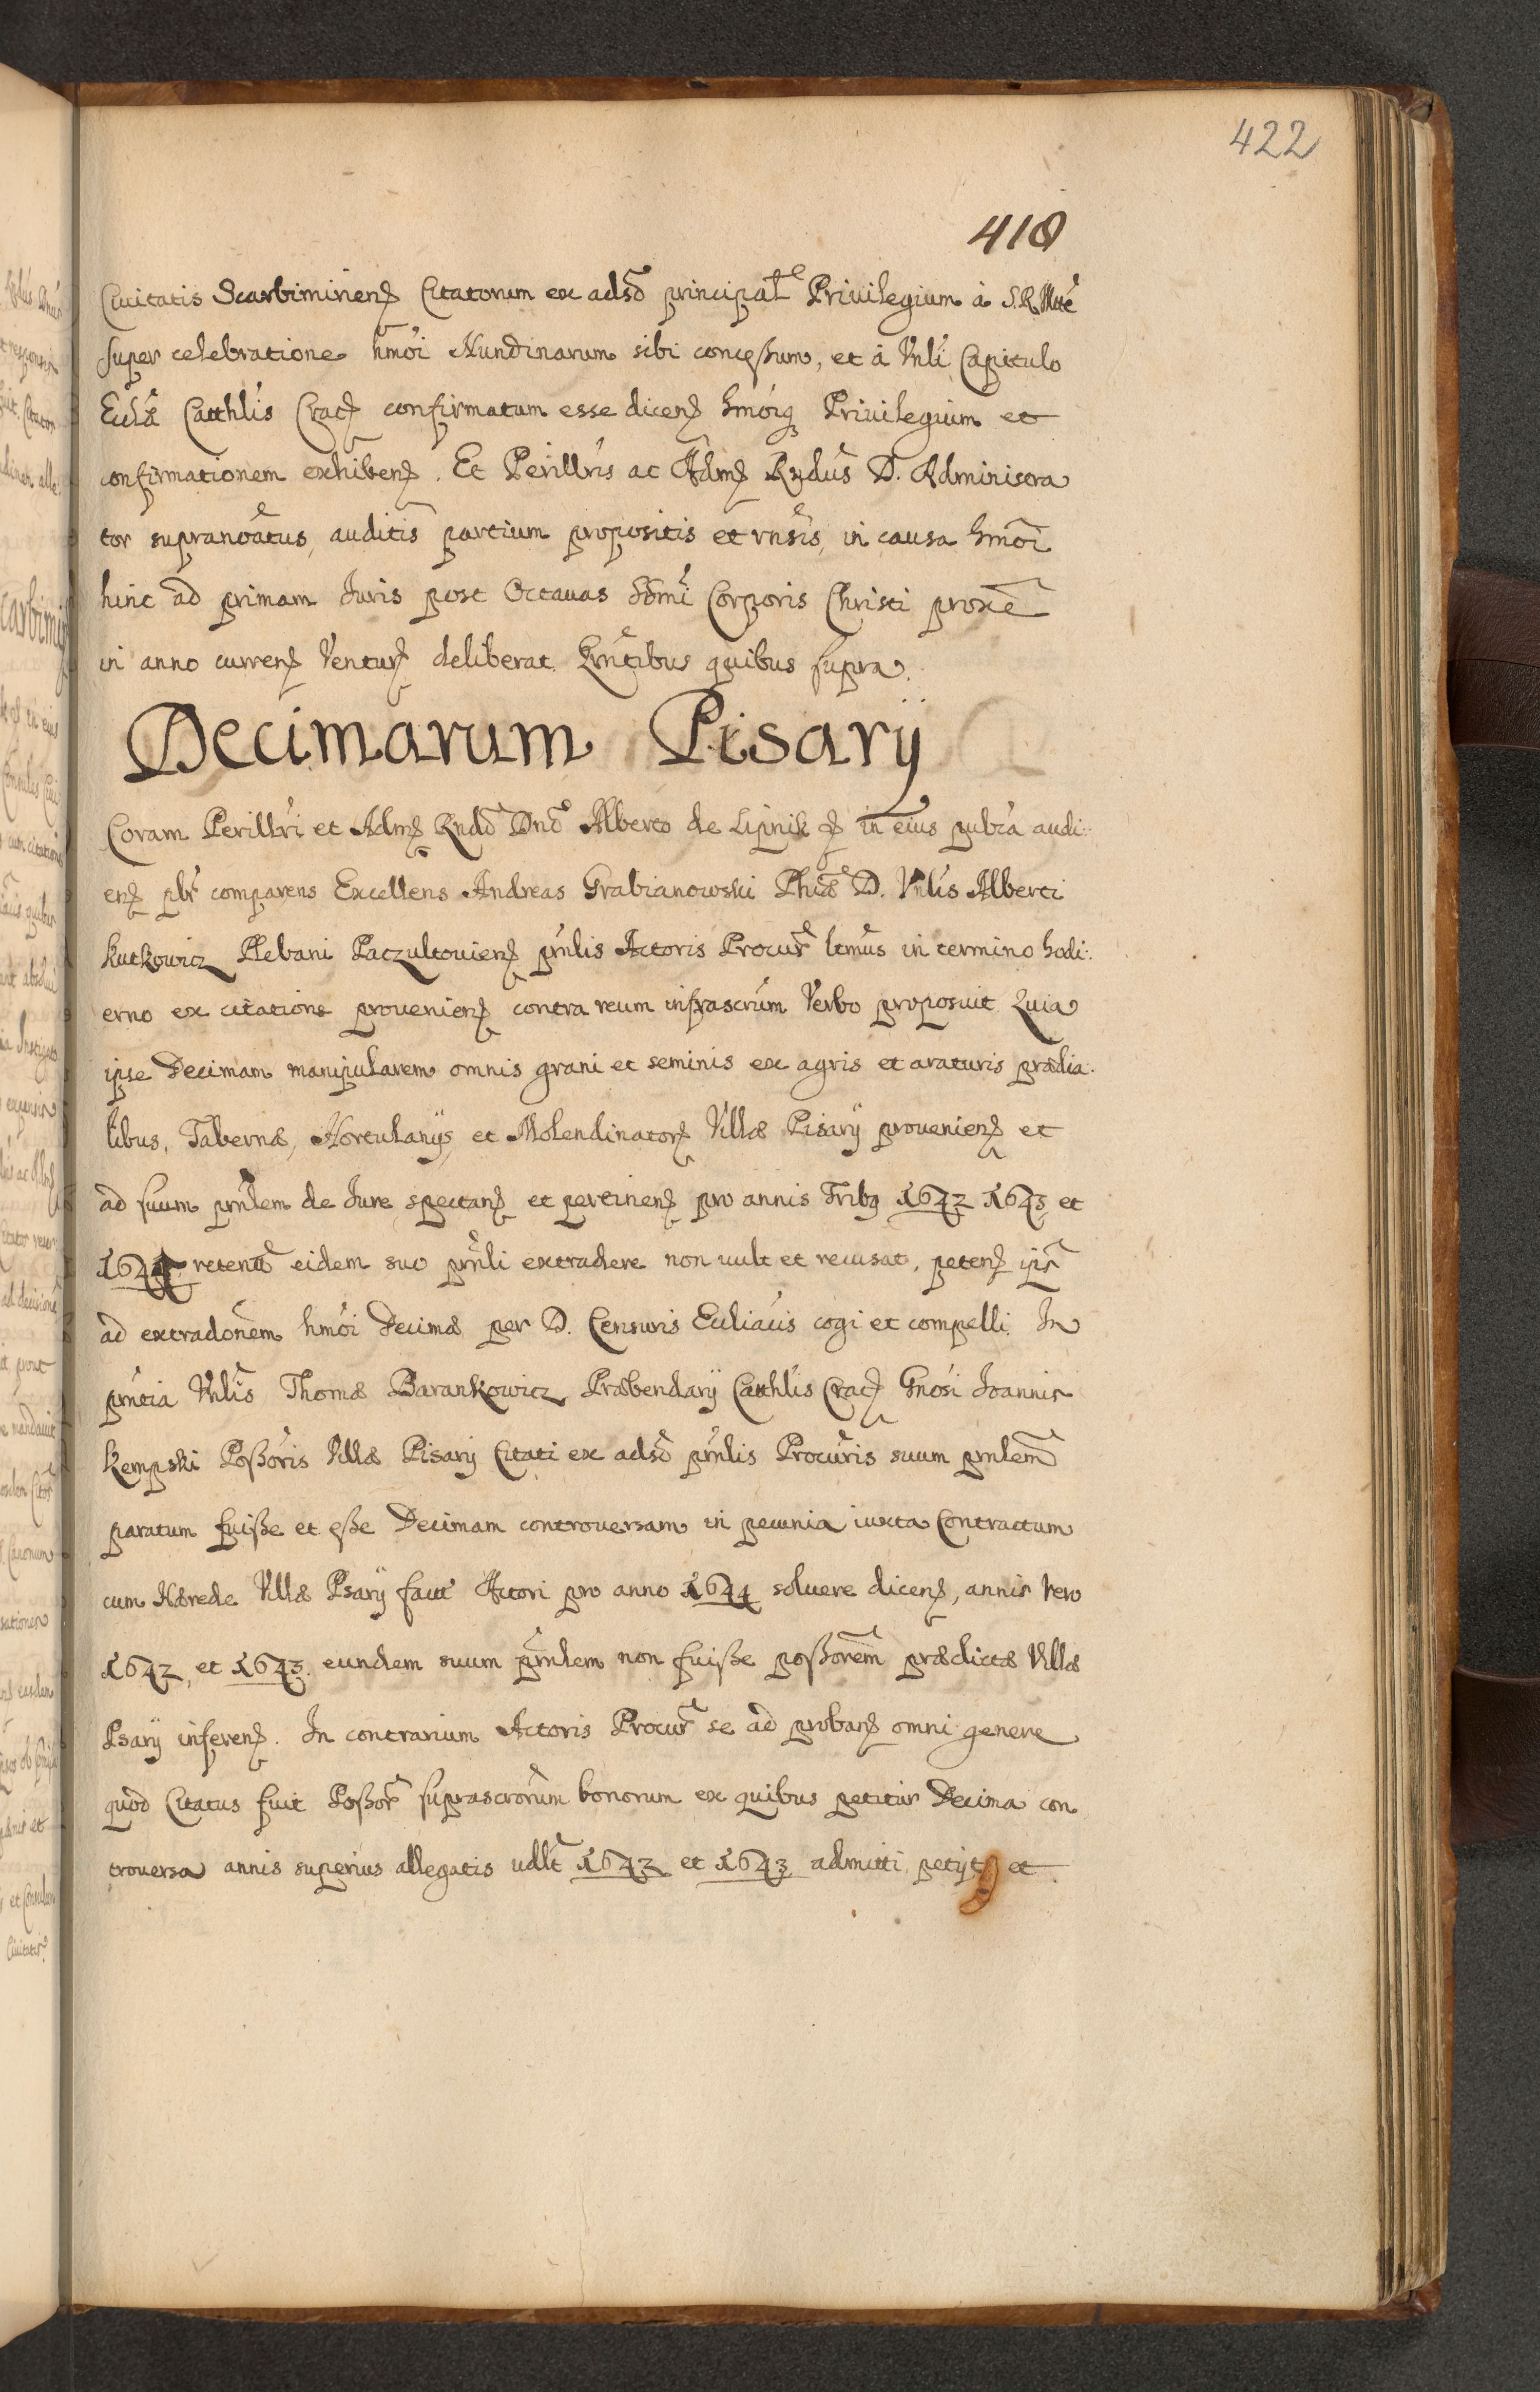 422
410
Ciuitatis Scarbimirien Citatorum ex adso principal Priuilegium à S.R.Mtte
super celebratione hmoi Nundinarum sibi concessum, et à Vnli Capitulo
Ecclae Catthlis Crac confirmatum esse dicen hmoiq Priuilegium et
confirmationem exhiben. Et Perillris ac Adm Rndus D. Administra
tor supranoatus, auditis partium propositis et rnsis, in causa hmoi
hinc ad primam Iuris post Octauas SSmi Corporis Christi proxe
in anno curren Ventur deliberat. Prntibus quibus supra.
Decimarum Pisarÿ
Coram Perillri et Adm Rndo Dno Alberto de Lipnik etc in eius publca audi:
en pbr comparens Excellens Andreas Grabianowski Phiae D. Vnlis Alberti
Kutkowicz Plebani Paczultouien prnlis Actoris Procur ltmus in termino hodi:
erno ex citatione prouenien contra reum infrascrum Verbo proposuit Quia
ipse Decimam manipularem omnis grani et seminis ex agris et araturis prædia:
libus, Tabernæ, Hortulanÿs, et Molendinator Villæ Pisarÿ prouenien et
ad suum prnlem de Iure spectan et pertinen pro annis Tribq 1642 1643 et
1644 retenta eidem suo prnli extradere non uult et recusat, peten ipsr
ad extradonem hmoi Decimæ per D. Censuris Eccliauis cogi et compelli. In
prntia Vnlis Thomæ Barankowicz Præbendarÿ Catthlis Crac Gnosi Ioannis
Kempski Possoris Villæ Pisarÿ Citati ex adso prnlis Procuris suum prnlem
paratum fuisse et esse Decimam controuersam in pecunia iuxta Contractum
cum Hærede Villæ Psarÿ fact Actori pro anno 1644 soluere dicen, annis vero
1642, et 1643. eundem suum prnlem non fuisse possorem prædictæ Villæ
Psarÿ inferen. In contrarium Actoris Procur se ad proban omni genere
quod Citatus fuit Possor suprascrorum bonorum ex quibus petitur Decima con
trouersa annis superius allegatis udlt 1642 et 1643 admitti petÿt et